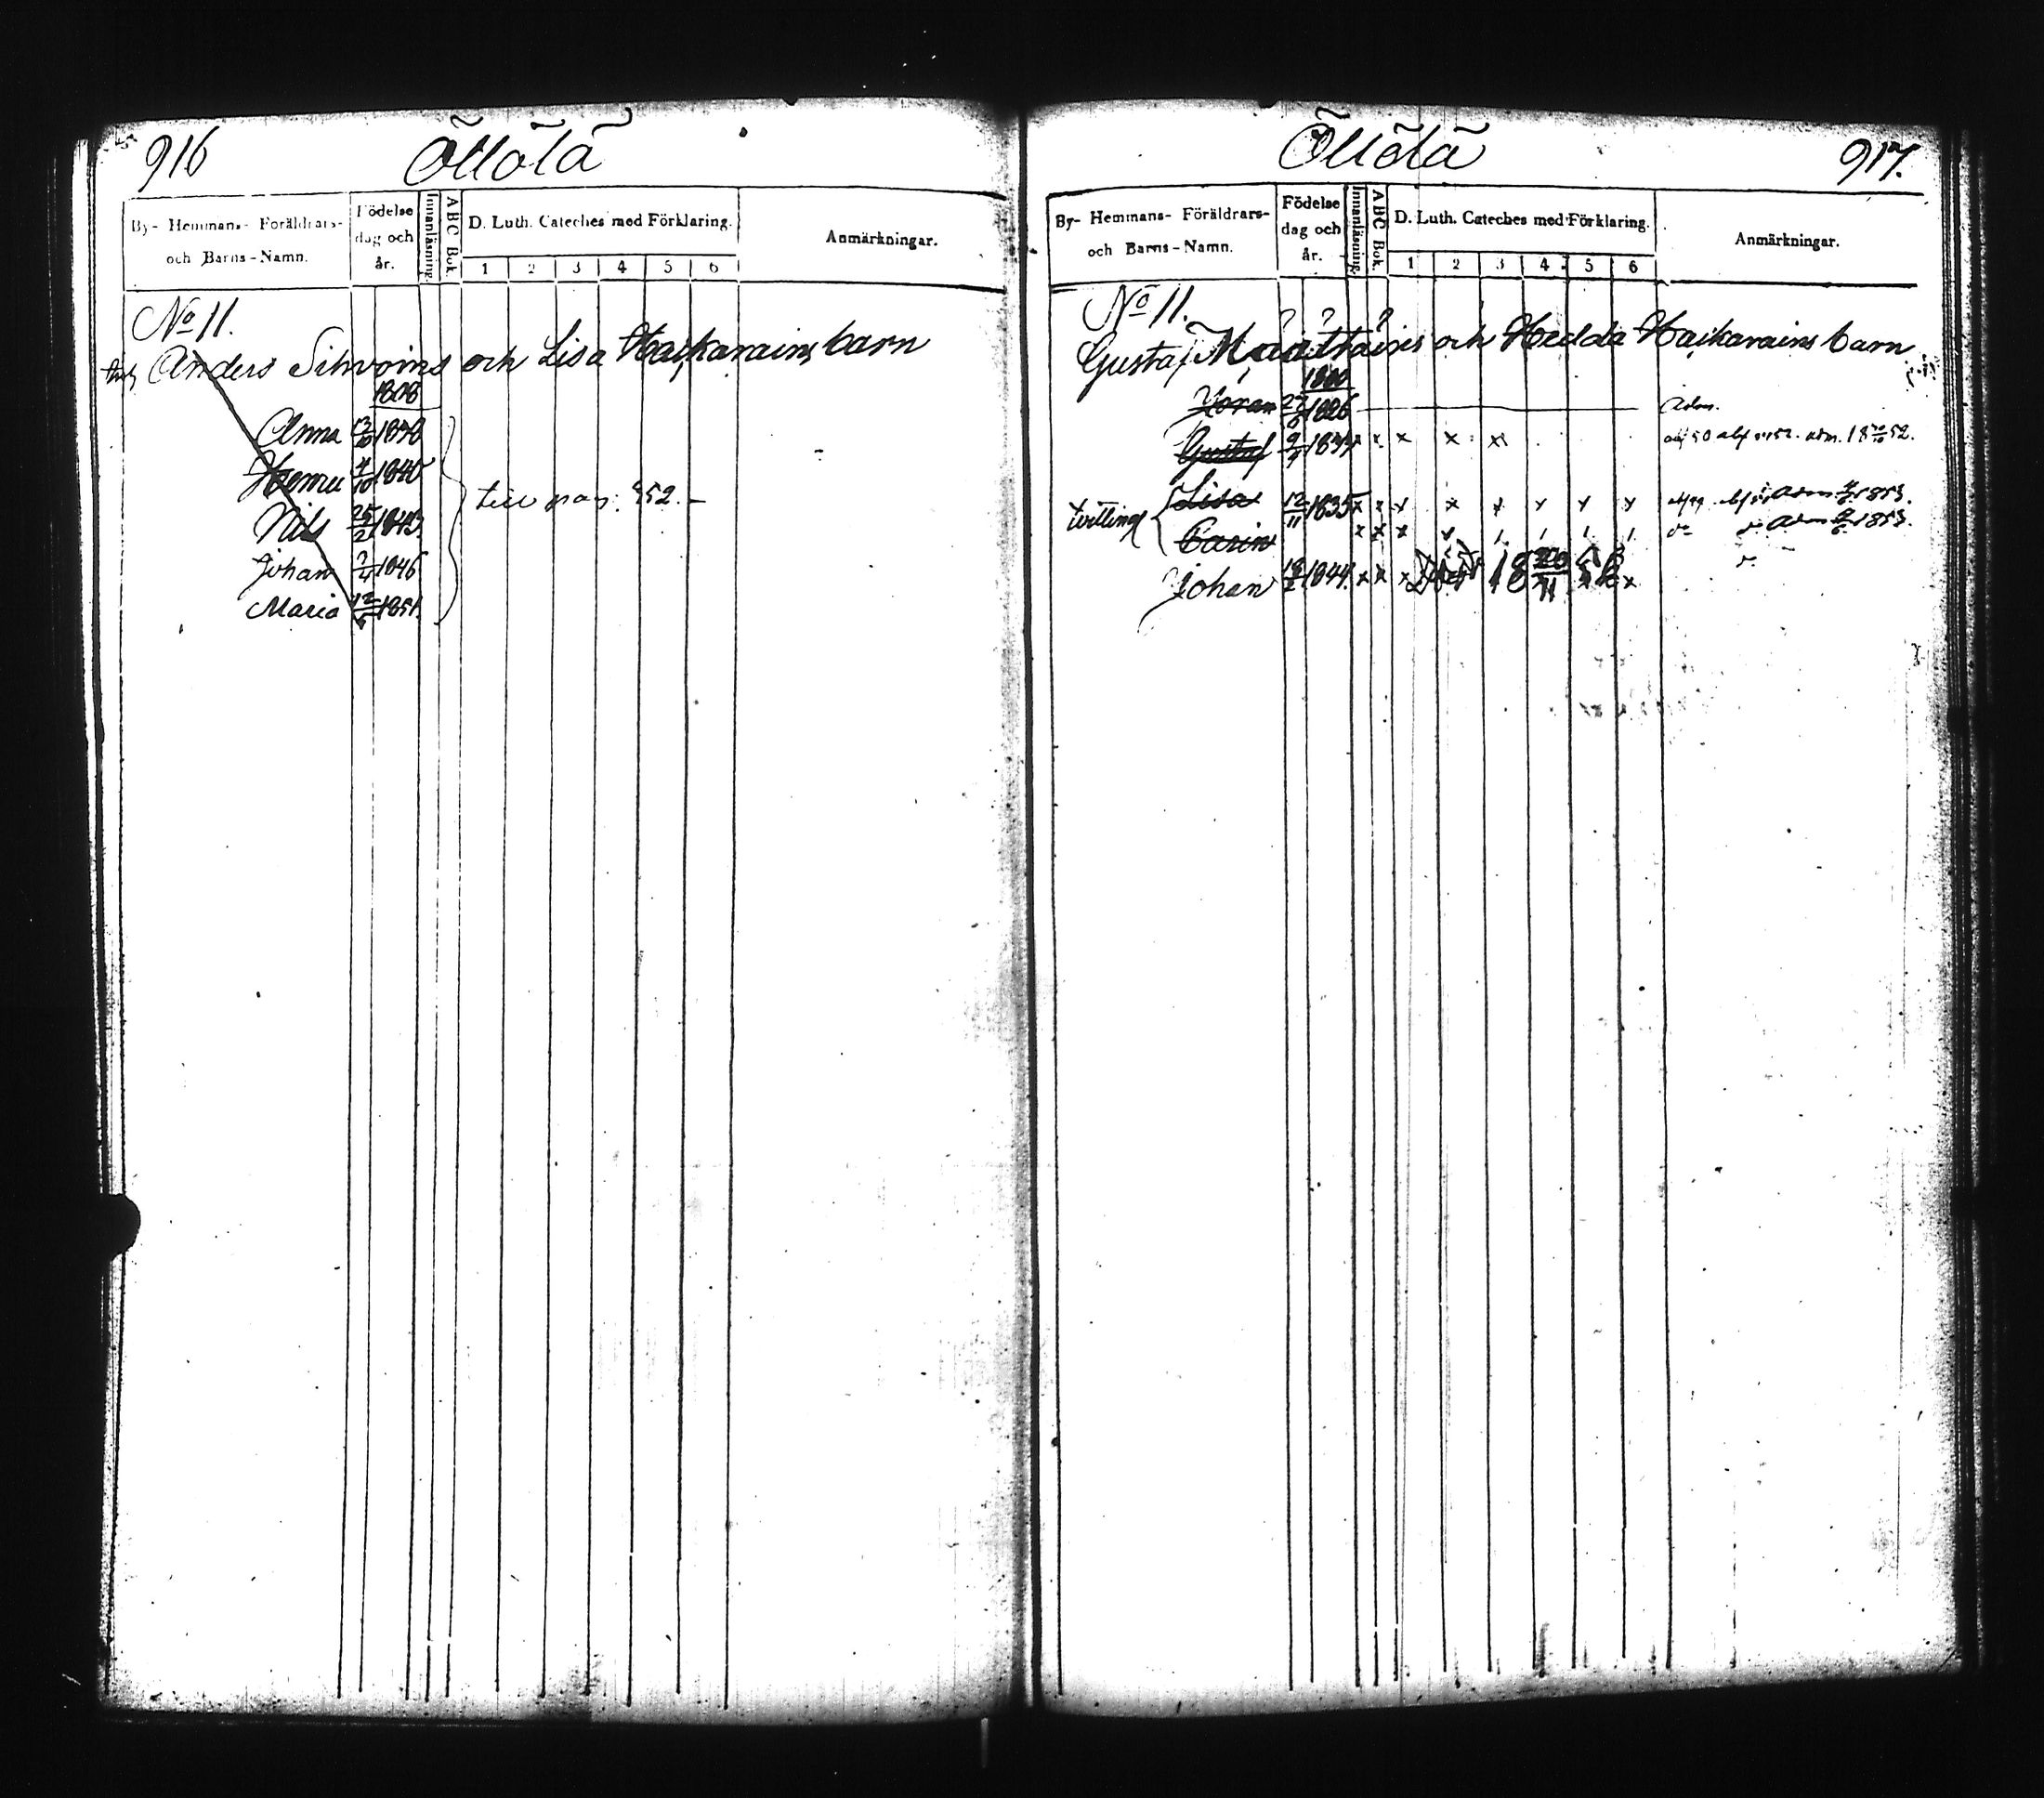 916
Öllölä
By- Hemmans- Föräldrars- och Barns-Namn.
Födelse dag och år.
Innanläsning.
ABC Bok.
D. Luth. Cateches med Förklaring.
1 2 3 4 5 6
Anmärkningar.
No 11.
Anders Sihvoins och Lisa Haskarains barn
1808
Anna 1838
Hemu 4/10 1840
Nils 25/2 1843
till pag: 952.
Johan 1846
Maria 1851.
Öllölä
917.
By- Hemmans- Föräldrars- och Barns-Namn.
Födelse dag och år.
Innanläsning.
ABC Bok.
D. Luth. Cateches med Förklaring.
1 2 3 4 5 6
Anmärkningar.
No 11.
Gustaf Määttäins och Hedda Haskarains barn
1800
Göran 1826 Adm.
Gustaf 9/7 1834 x x x x x adm. 18 52.
tvillingar
Lisa 12/11 1835 x x x x x x x x Adm 1853.
Carin x x x Adm 1853.
Johan 18/2 1844 x x x x